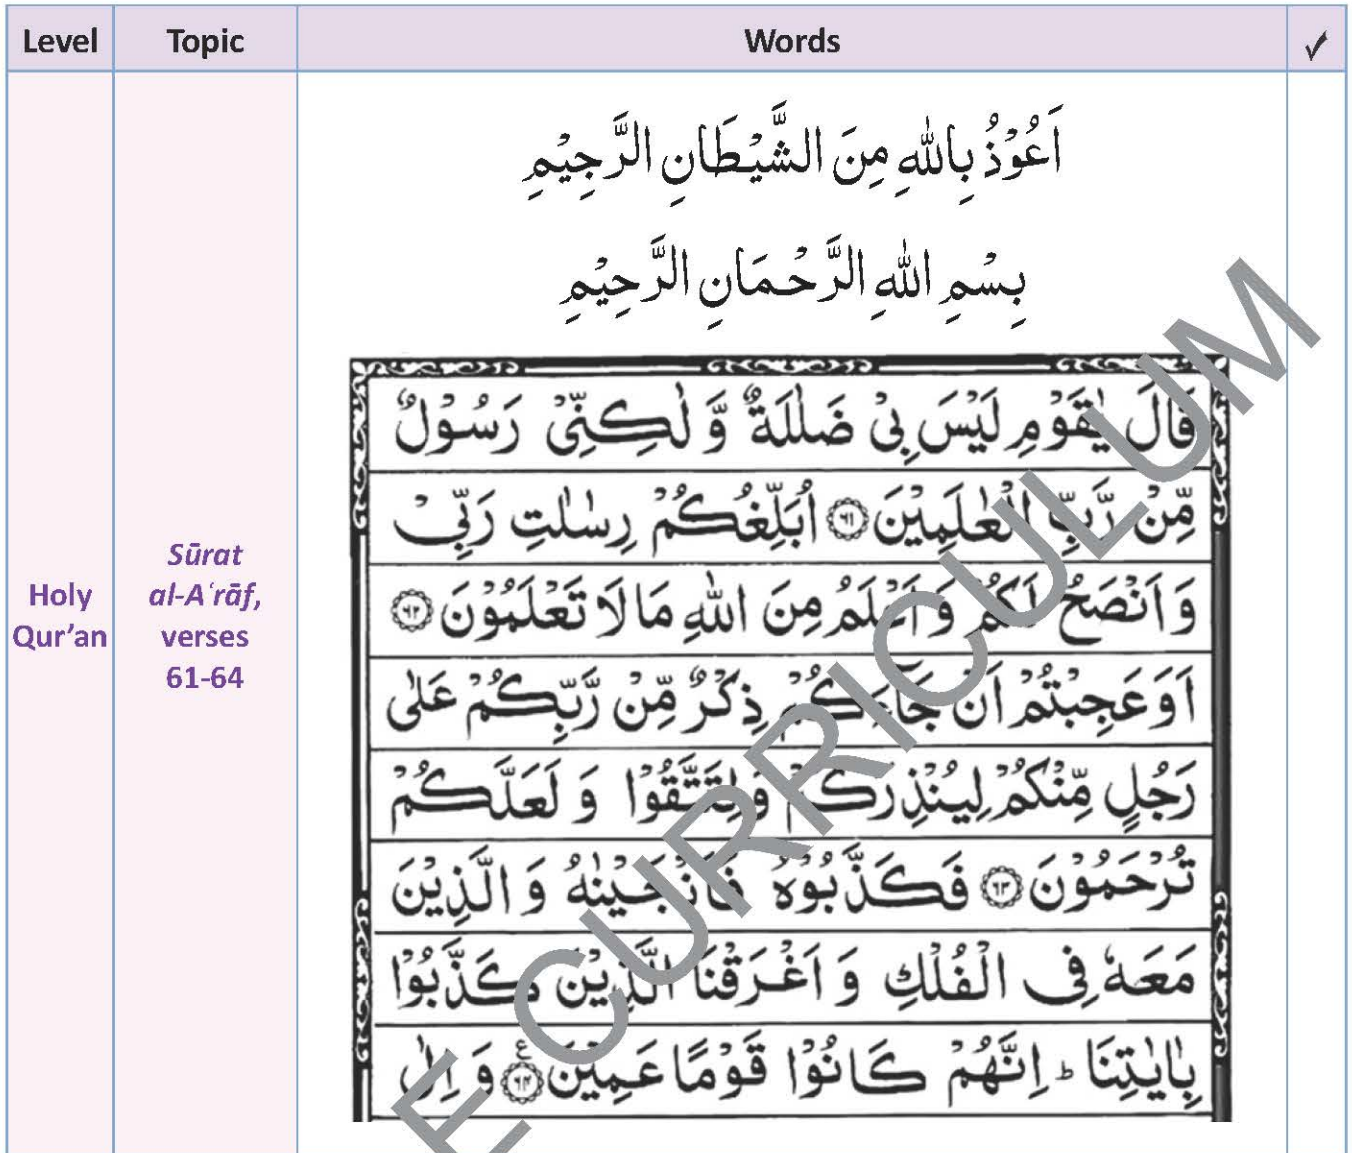 Level Topic Words ✓
Holy Qur’an
Sūrat al-Aʿrāf, verses 61-64
اَعُوْذُ بِاللّٰهِ مِنَ الشَّيْطَانِ الرَّجِيْمِ
بِسْمِ اللّٰهِ الرَّحْمَانِ الرَّحِيْمِ
قَالَ يٰقَوْمِ لَيْسَ بِيْ ضَلٰلَةٌ وَّ لٰكِنِّيْ رَسُوْلٌ
مِّنْ رَّبِّ الْعٰلَمِيْنَ ﴿٦١﴾ اُبَلِّغُكُمْ رِسٰلٰتِ رَبِّيْ
وَ اَنْصَحُ لَكُمْ وَ اَعْلَمُ مِنَ اللّٰهِ مَا لَا تَعْلَمُوْنَ ﴿٦٢﴾
اَوَ عَجِبْتُمْ اَنْ جَآءَكُمْ ذِكْرٌ مِّنْ رَّبِّكُمْ عَلٰى
رَجُلٍ مِّنْكُمْ لِيُنْذِرَكُمْ وَ لِتَتَّقُوْا وَ لَعَلَّكُمْ
تُرْحَمُوْنَ ﴿٦٣﴾ فَكَذَّبُوْهُ فَاَنْجَيْنٰهُ وَ الَّذِيْنَ
مَعَهٗ فِي الْفُلْكِ وَ اَغْرَقْنَا الَّذِيْنَ كَذَّبُوْا
بِاٰيٰتِنَا ؕ اِنَّهُمْ كَانُوْا قَوْمًا عَمِيْنَ ﴿٦٤﴾ ع وَ اِلٰى
E CURRICULUM